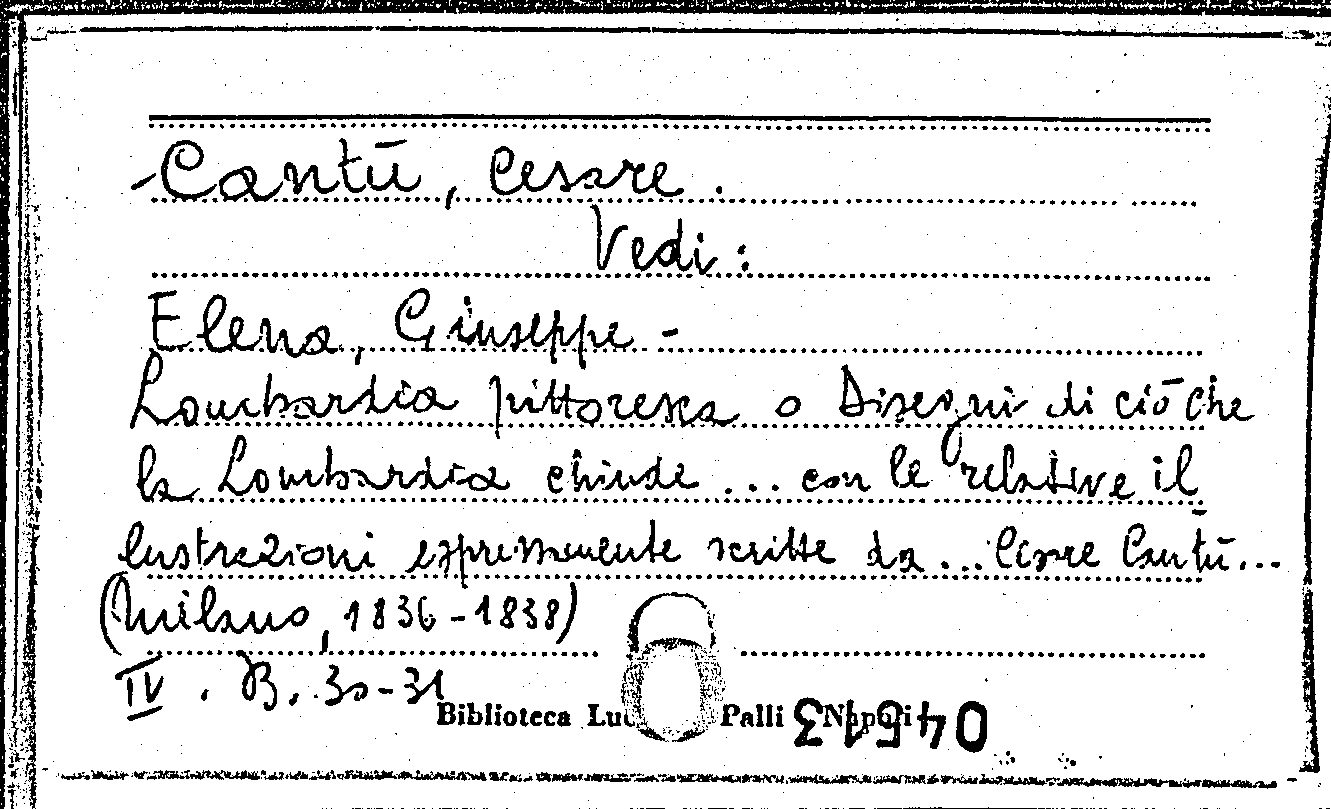 -Cantū, Cesare.
Vedi:
Elena, Giuseppe -
Lombardia pittoresca o Disegni di ciō che
la Lombardia chiude ... con le relative il
lustrazioni espressamente scritte da ... Cesare Cantū...
(Milano, 1836-1838)
IV. B. 30-31
Biblioteca Palli Napoli
04513